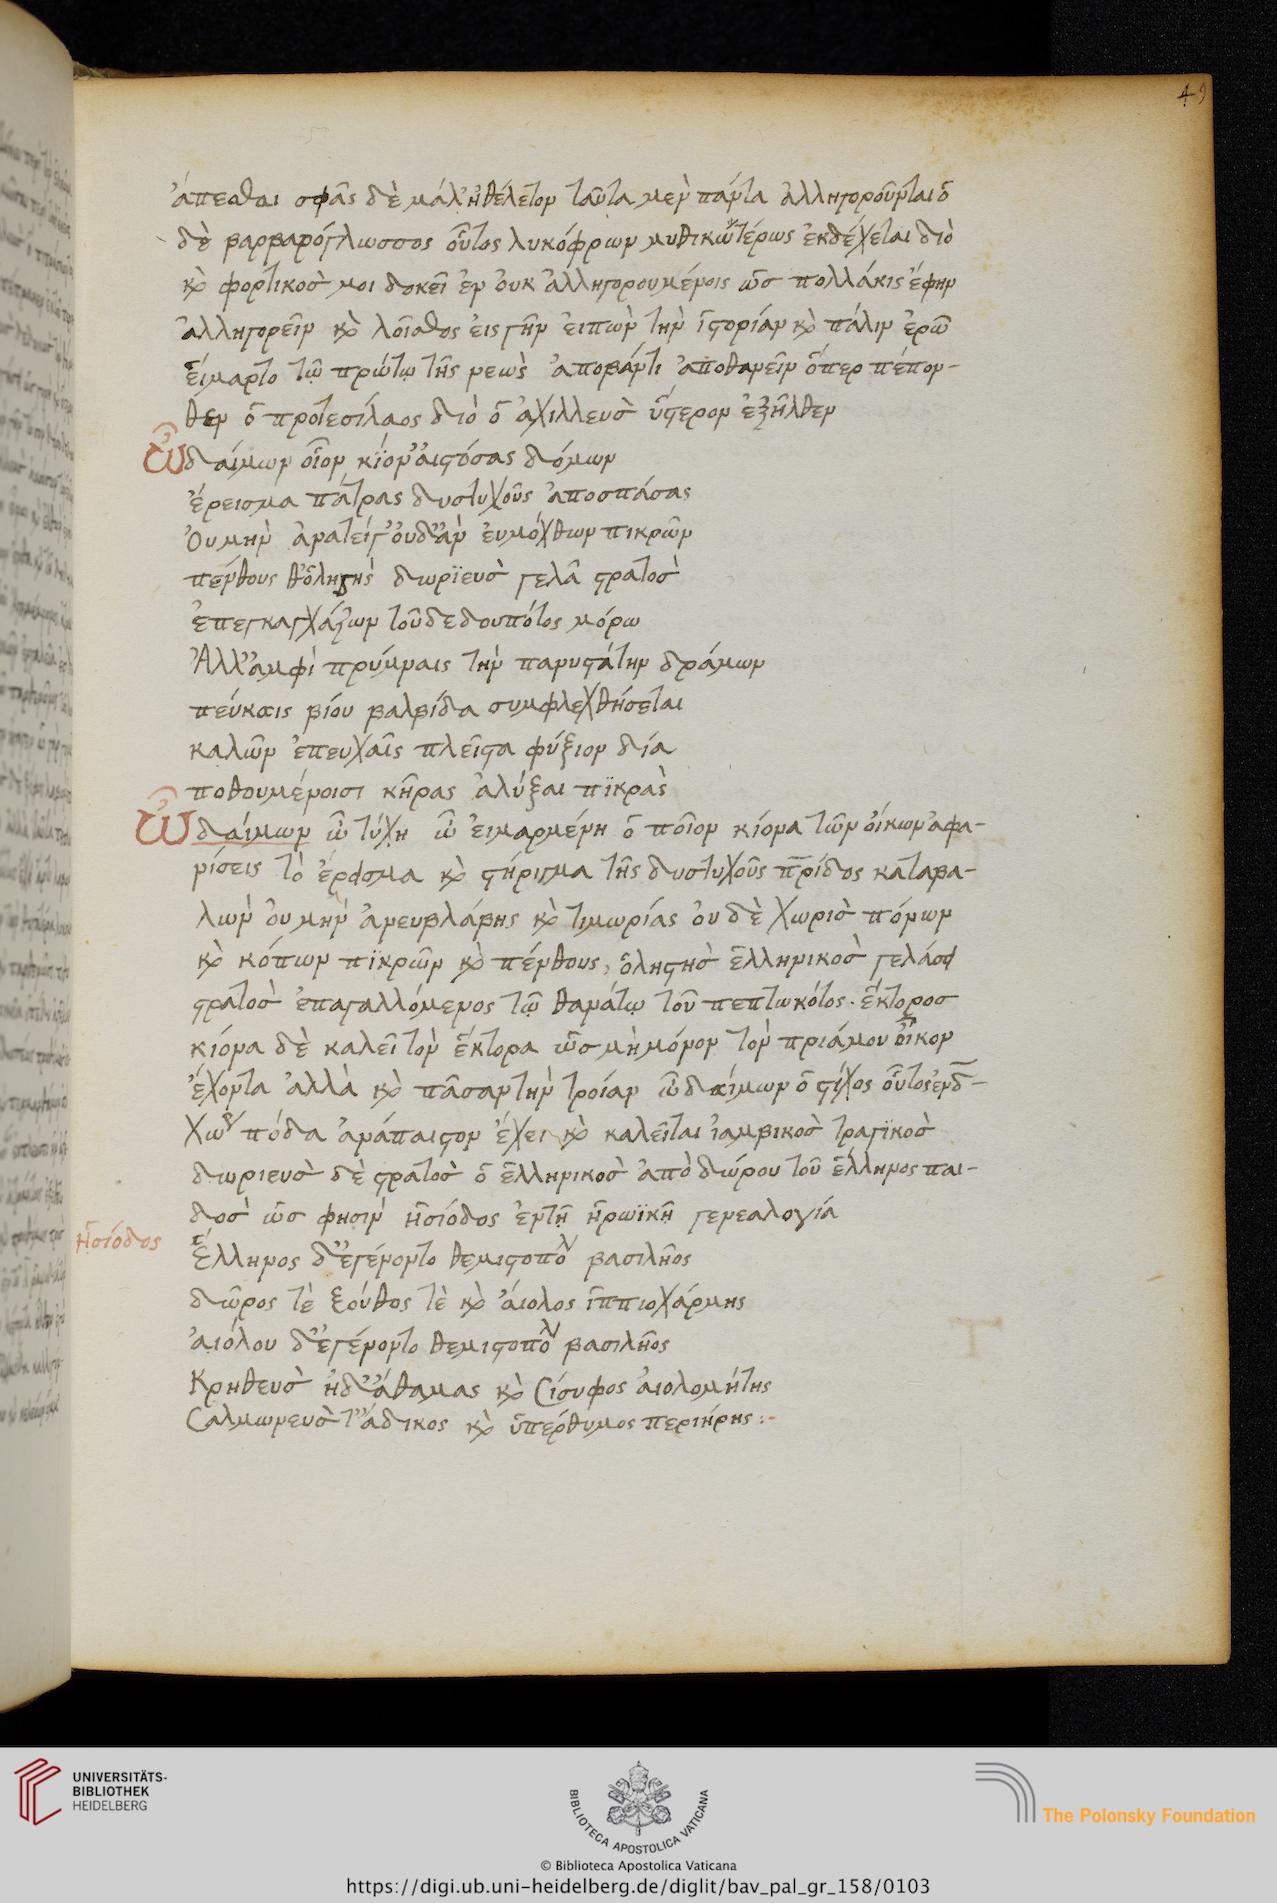 49
ἅπεσθαι σφᾶς δὲ μάλ' ἠθέλετον ταῦτα μὲν πάντα ἀλληγοροῦνται ὁ
δὲ βαρβαρόγλωσσος οὗτος λυκόφρων μυθικωτέρως ἐκδέχεται διὸ
καὶ φορτικοσ μοι δοκεῖ ἐν οὐκ ἀλληγορουμένοις ὡσ πολλάκις ἔφην
ἀλληγορεῖν καὶ λοῖσθος εἰς γῆν εἰπὼν τὴν ἱστορίαν καὶ πάλιν ἐρῶ
εἵμαρτο τῶ πρώτω τῆς νεὼς ἀποβάντι ἀποθανεῖν ὅπερ πέπον-
θεν ὁ πρωτεσίλαος διὸ ὁ ἀχιλλευσ ὕστερον ἐξῆλθεν
Ὦ δαίμων οἷον κίον' αἰστώσας δόμων
ἔρεισμα πάτρας δυστυχοῦς ἀποσπάσας
Οὐ μὴν ἀνατεί γ' οὐδ' ἂν εὐμόχθων πικρῶν
πένθους θ' ὁ ληστὴς δωριευσ γελᾶ στρατοσ
ἐπεγκαγχάζων τοῦ δεδουπότος μόρω
Ἀλλ' ἀμφὶ πρύμναις τὴν πανυστάτην δράμων
πεύκαις βίου βαλβίδα συμφλεχθήσεται
καλῶν ἐπευχαῖς πλεῖστα φύξιον δία
πορθουμένοισι κῆρας ἀλύξαι πικρὰς
Ὦ δαίμων ὦ τύχη ὦ εἱμαρμένη ὁ ποῖον κίονα τῶν οἴκων ἀφα-
νίσεις τὸ ἔρεισμα καὶ στήριγμα τῆς δυστυχοῦς πρίδος καταβα-
λὼν οὐ μὴν ἄνευ βλάβης καὶ τιμωρίας οὐ δὲ χωρισ πόνων
καὶ κόπων πικρῶν καὶ πένθους, ὁ ληστησ ἑλληνικοσ γελάσει
στρατοσ ἐπαγαλλόμενος τῶ θανάτω τοῦ πεπτωκότος· ἕκτοροσ
κίονα δὲ καλεῖ τὸν ἕκτορα ὡσ μὴ μόνον τὸν πριάμου οἶκον
ἔχοντα ἀλλὰ καὶ πᾶσαν τὴν τροίαν ὦ δαίμων ὁ στίχος οὗτος ἐνδ-
χωῦ πόδα ἀνάπαιστον ἔχει καὶ καλεῖται ἰαμβικοσ τραγικοσ
δωριευσ δὲ στρατοσ ὁ ἑλληνικοσ ἀπὸ δώρου τοῦ ἕλληνος παι-
δοσ ὡσ φησιν ἡσιόδος ἐν τῆ ἡρωϊκῆ γενεαλογία
Ἡσιόδος
Ἕλληνος δ' ἐγένοντο θεμιστοπολ βασιλῆος
δῶρος τὲ ξούθος τὲ καὶ αἴολος ἱππιοχάρμης
αἰόλου δ' ἐγένοντο θεμιστοπολ βασιλῆος
Κρηθευσ ἠδ' ἀθαμας καὶ Σίσυφος αἰολομήτης
Σαλμωνευσ τ' ἄδικος καὶ ὑπέρθυμος περιήρης:-
UNIVERSITÄTS-
BIBLIOTHEK
HEIDELBERG
BIBLIOTECA APOSTOLICA VATICANA
The Polonsky Foundation
© Biblioteca Apostolica Vaticana
https://digi.ub.uni-heidelberg.de/diglit/bav_pal_gr_158/0103